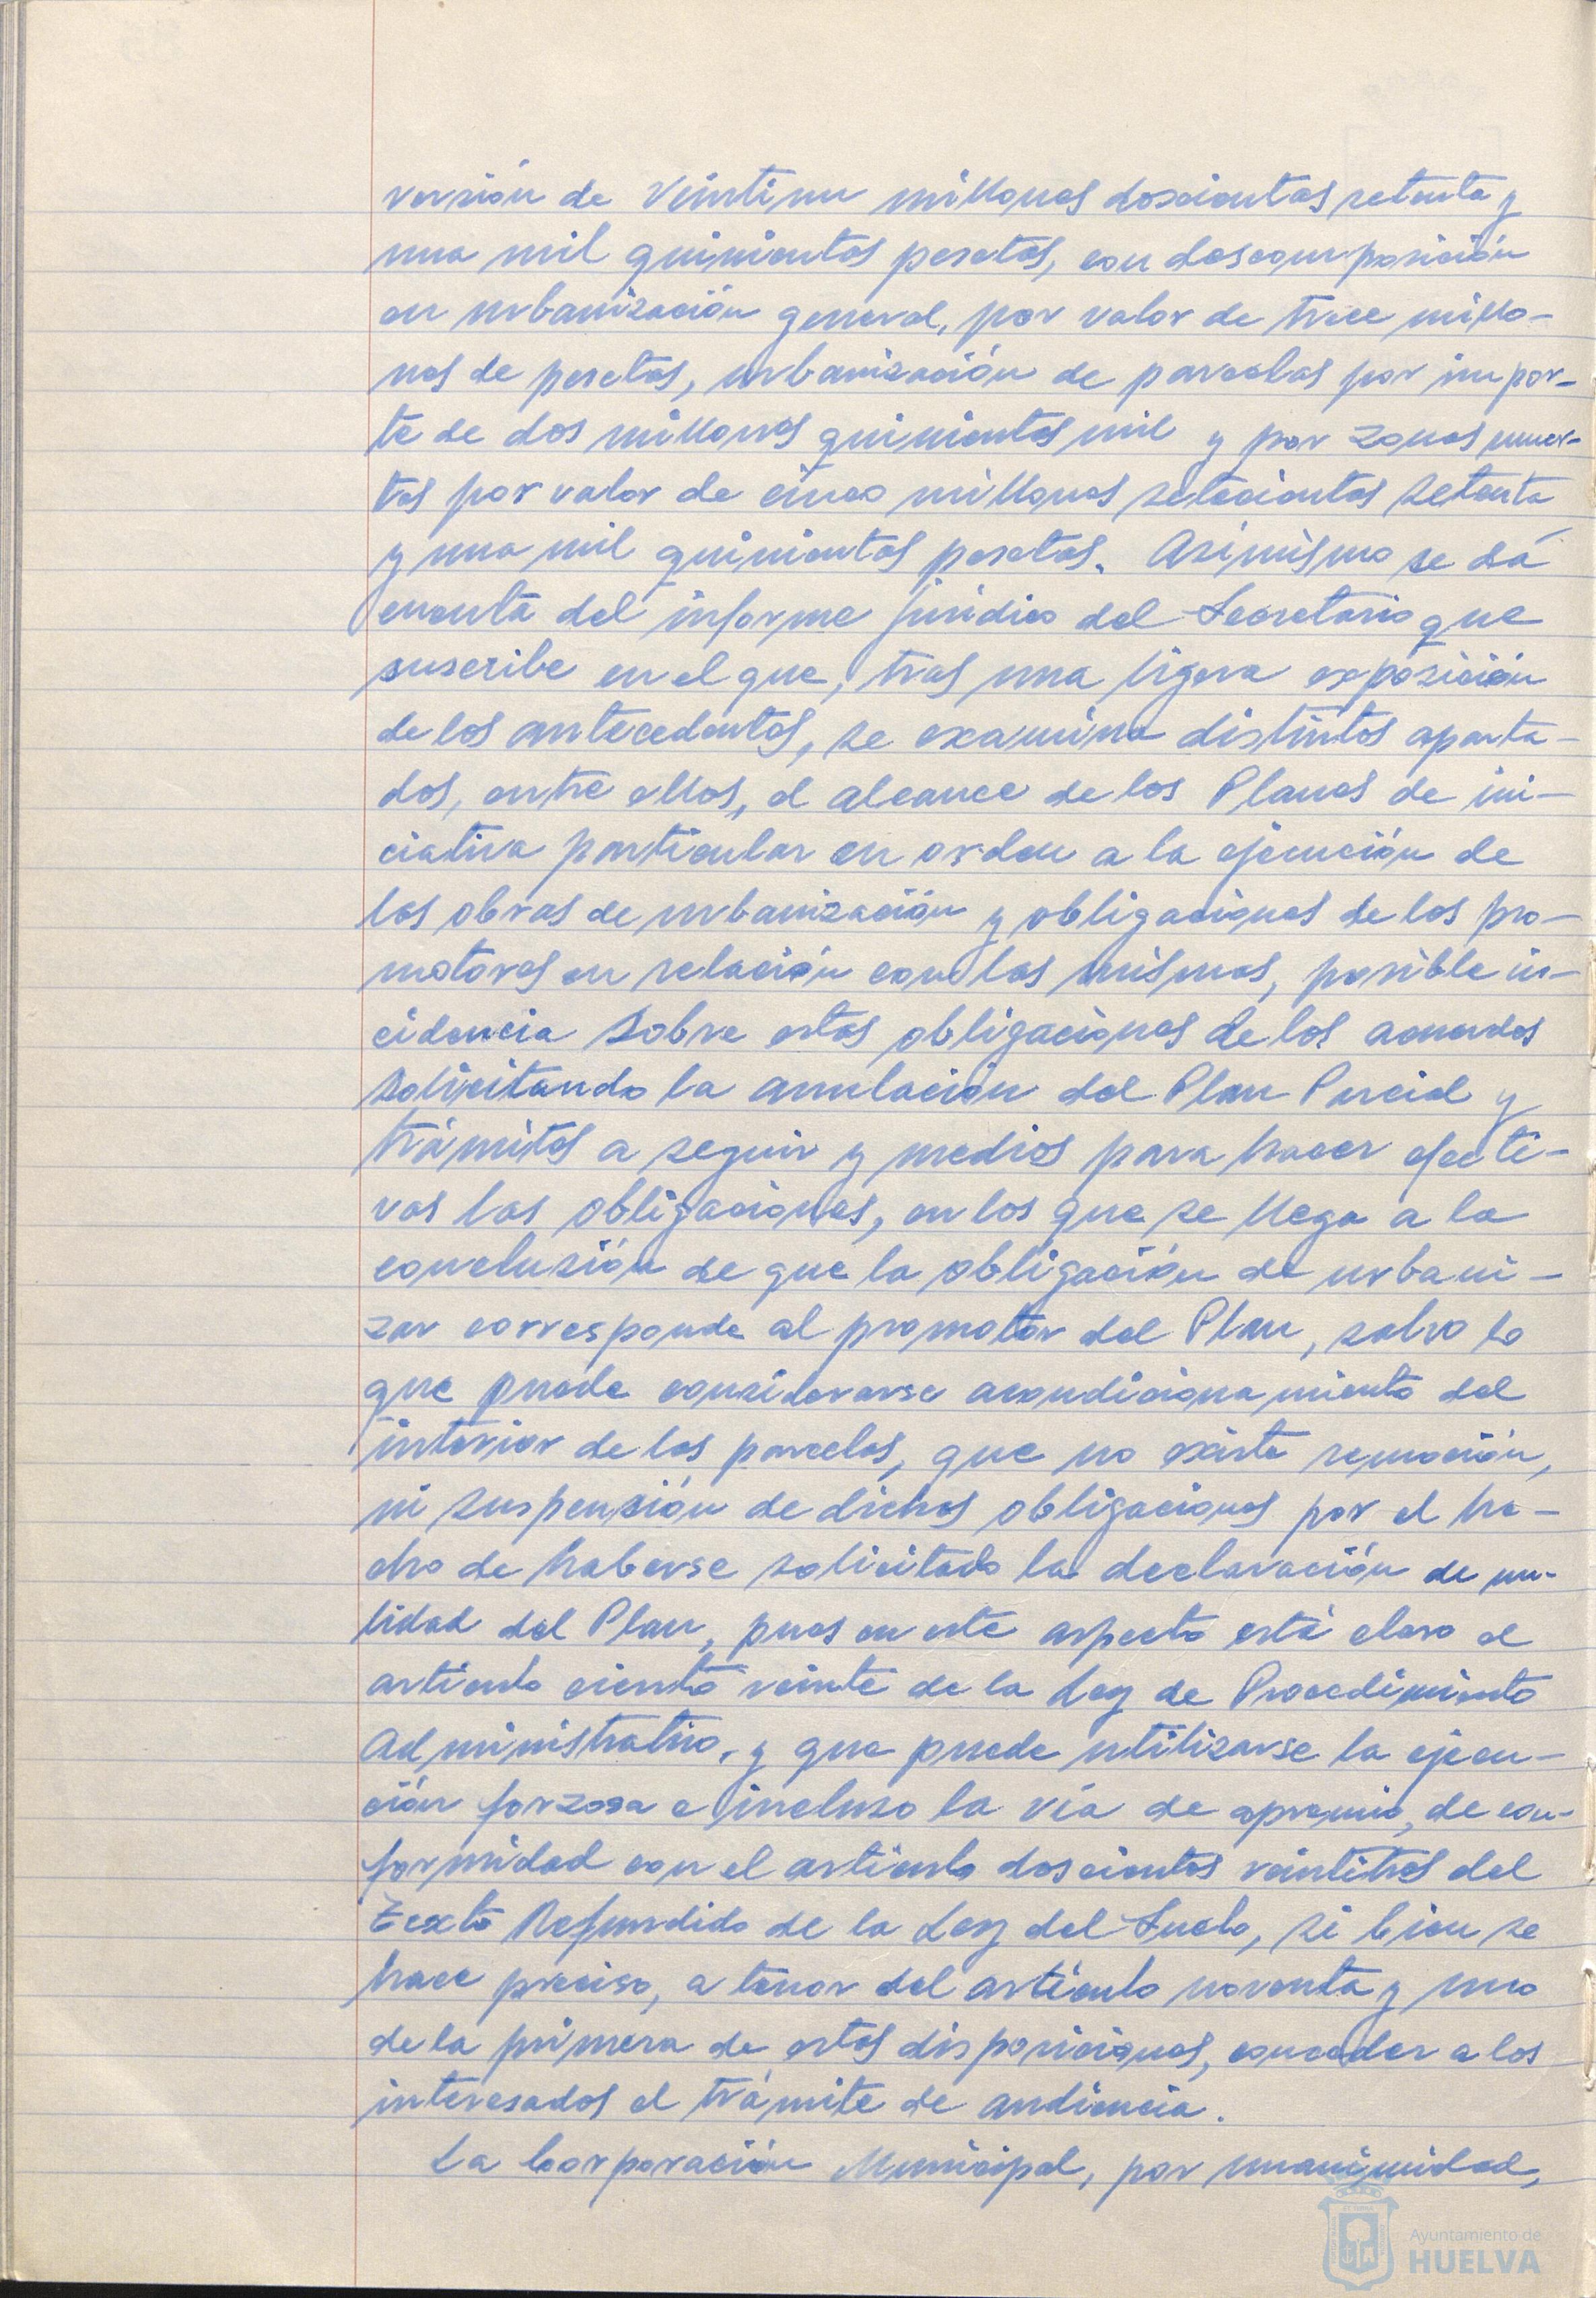 versión de Veintiun millones doscientas setenta y
una mil quinientas pesetas, con descomposición
en urbanización general, por valor de trece millo-
nes de pesetas, urbanización de parcelas por impor-
te de dos millones quinientas mil y por zonas muer-
tas por valor de cinco millones setecientas setenta
y una mil quinientas pesetas. Asimismo se dá
cuenta del informe jurídico del Secretario que
suscribe en el que, tras una ligera exposición
de los antecedentes, se examina distintos aparta-
dos, entre ellos, el alcance de los Planes de ini-
ciativa particular en orden a la ejecución de
las obras de urbanización y obligaciones de los pro-
motores en relación con las mismas, posible in-
cidencia sobre estas obligaciones de los acuerdos
solicitando la anulación del Plan Parcial y
trámites a seguir y medios para hacer efecti-
vas las obligaciones, en los que se llega a la
conclusión de que la obligación de urbani-
zar corresponde al promotor del Plan, salvo lo
que puede considerarse acondicionamiento del
interior de las parcelas, que no existe remoción,
ni suspensión de dichas obligaciones por el he-
cho de haberse solicitado la declaración de nu-
lidad del Plan, pues en este aspecto está claro el
artículo ciento veinte de la Ley de Procedimiento
Administrativo, y que puede utilizarse la ejecu-
ción forzosa e incluso la vía de apremio, de con-
formidad con el artículo doscientos veintitres del
Texto Refundido de la Ley del Suelo, si bien se
hace preciso, a tenor del artículo noventa y uno
de la primera de estas disposiciones, conceder a los
interesados el trámite de audiencia.
La Corporación Municipal, por unanimidad,
Ayuntamiento de
HUELVA